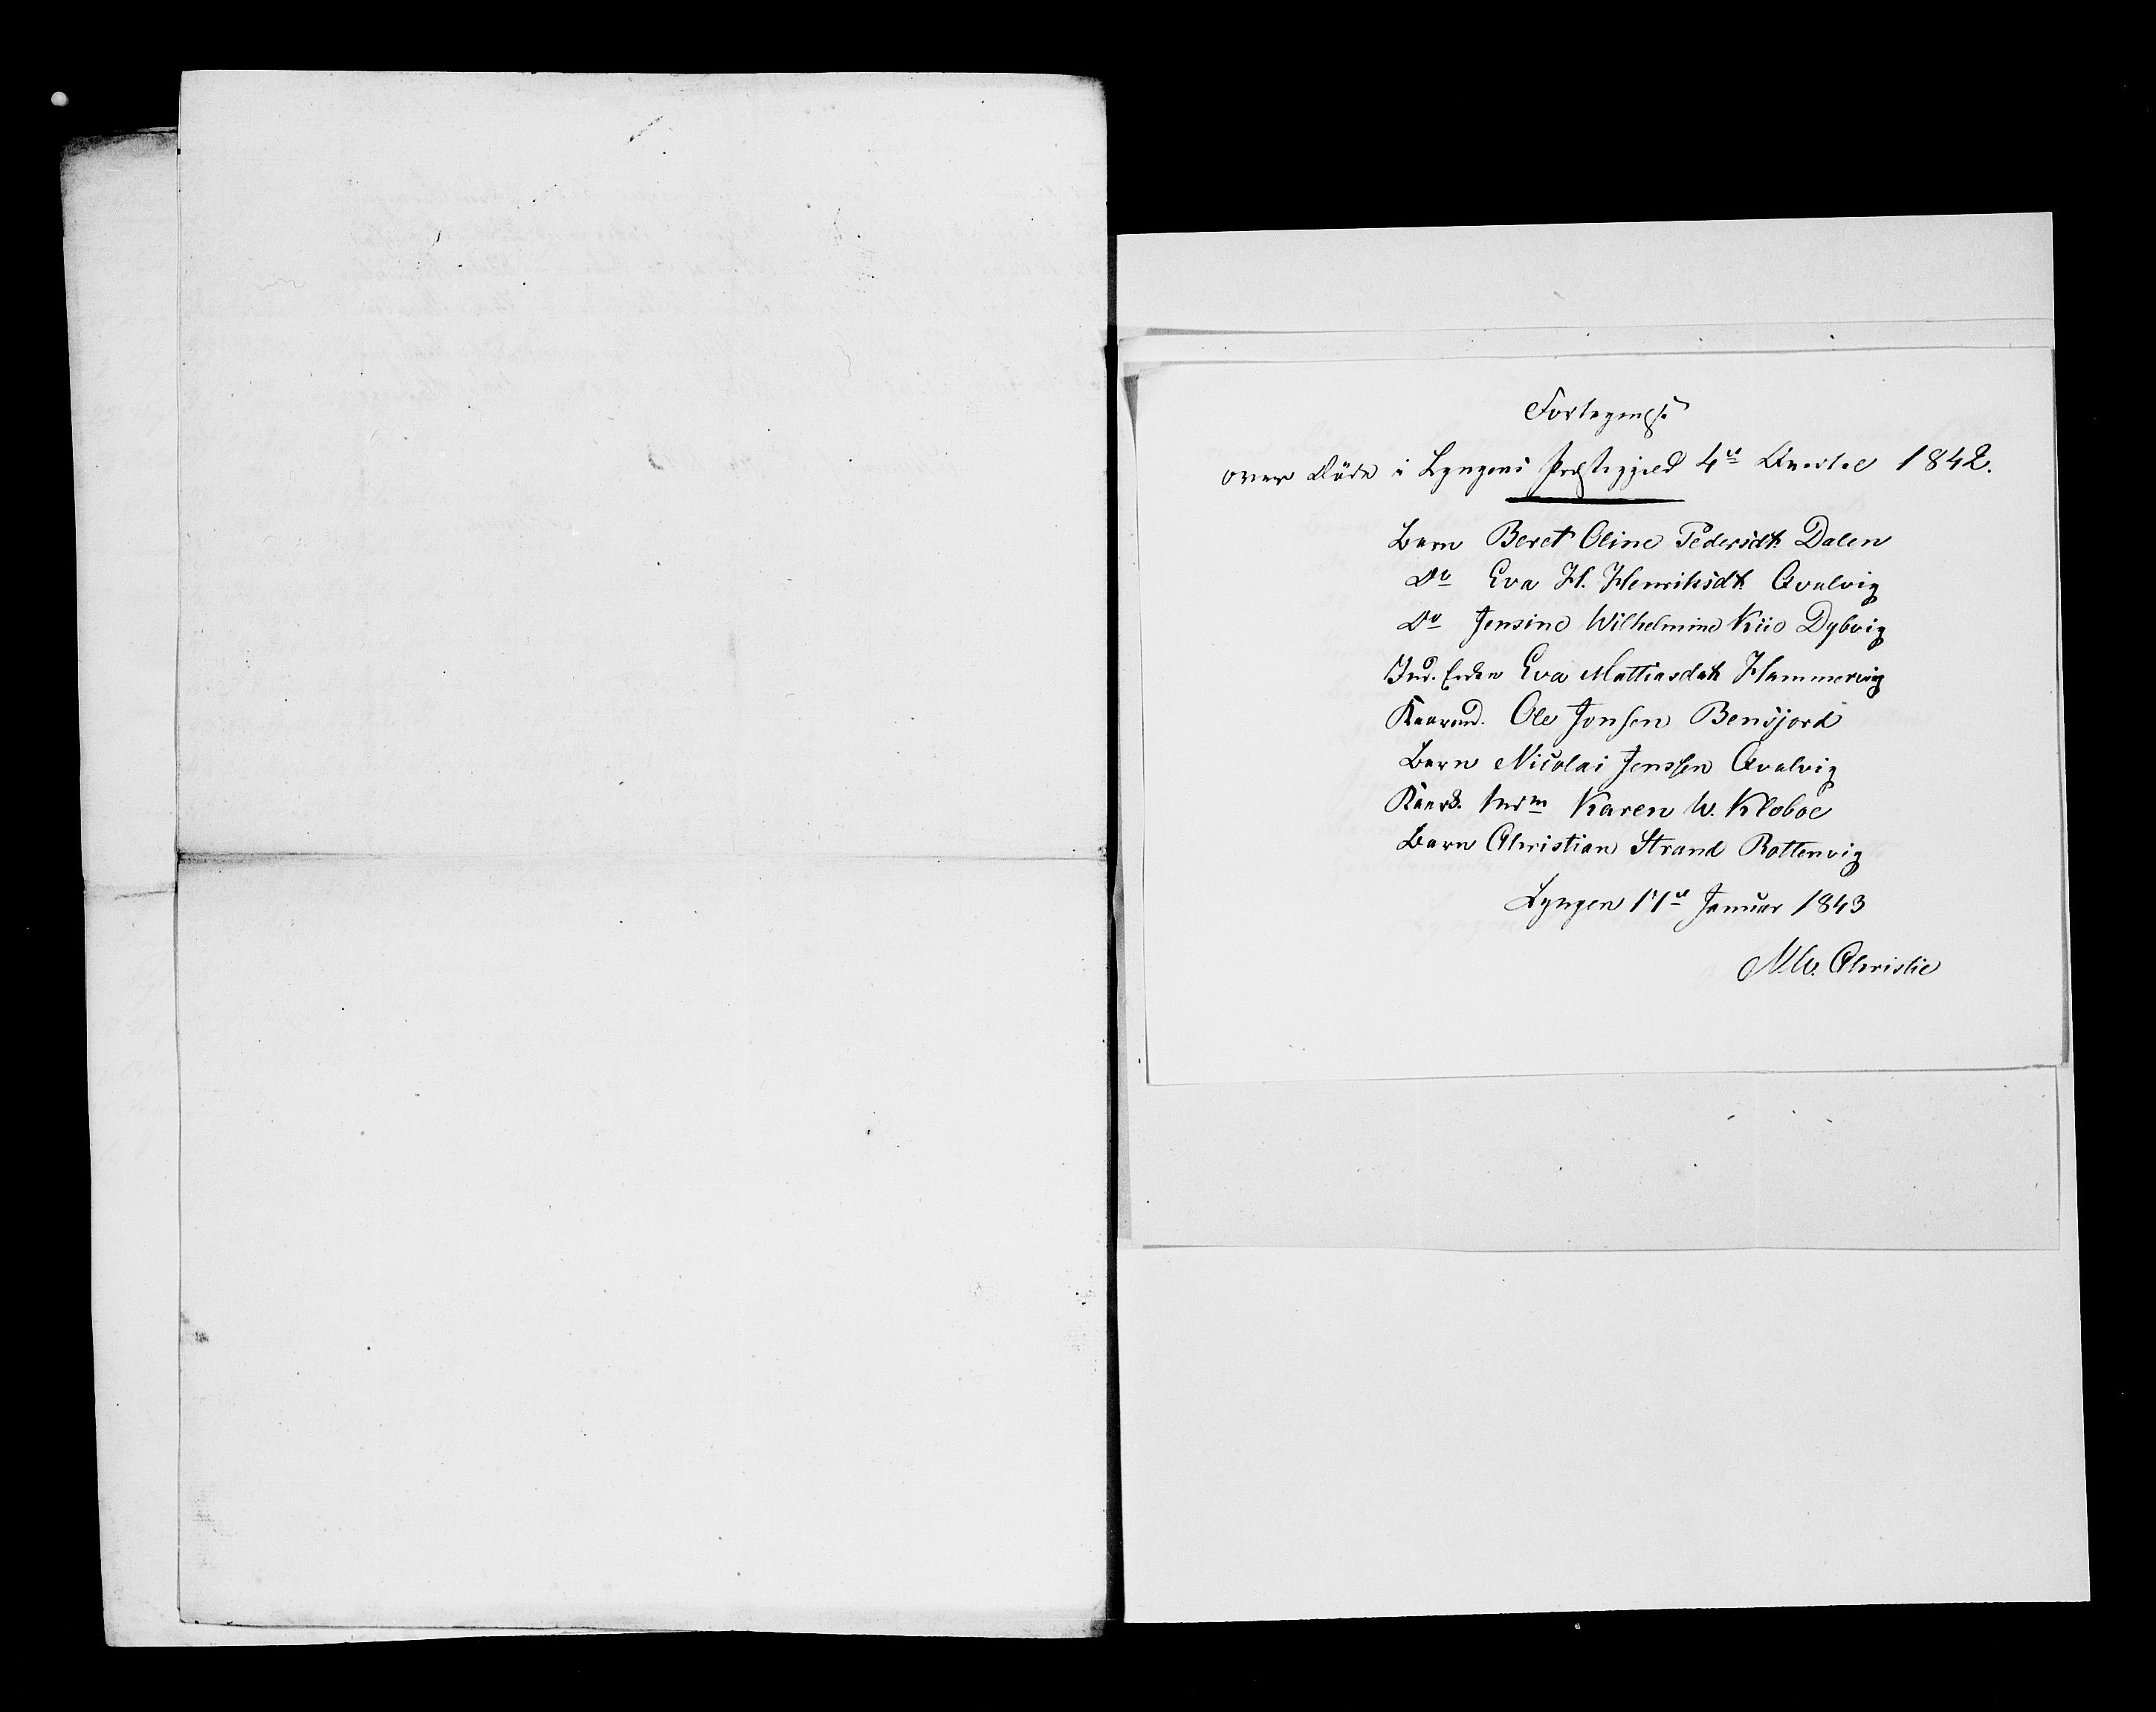 Fortegnelse
over Døde i Lyngens Præstegjeld 4de Qvartal 1842.
Barn Beret Oline Pedersdtr Dalen
Do Eva H. Henriksdtr Qvalvig
Do Jensine Wilhelmine Kiio Dybvig
Ind. Enken Eva Mattiasdatr Hammervig
Kaarmd. Ole Jonsen Bensjord
Barn Nicolai Jenssen Qvalvig
Karen W. Kloboe
Barn Christian Strand Rottenvig
Lyngen 17de Januar 1843
Christie